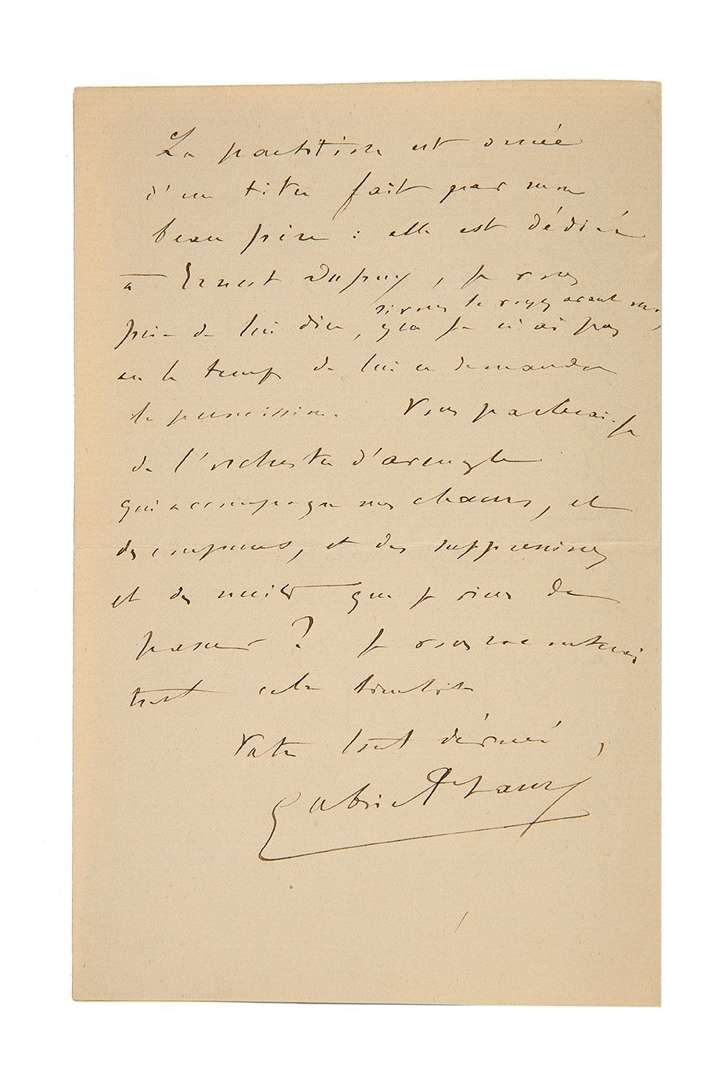 La partition est ornée
d'un titre fait par mon
beau père : elle est dédiée
à Ernest Dupuy, je vous
si vous le voyez avant moi,
prie de lui dire, que je n'ai pas
eu le temps de lui en demander
la permission. Vous parlerai-je
de l'orchestre d'aveugles
qui accompagne mes chœurs, et
des coupures, et des suppressions
et des nuits que je viens de
passer ? Je vous raconterai
tout cela bientôt
Votre tout dévoué,
Gabriel Fauré